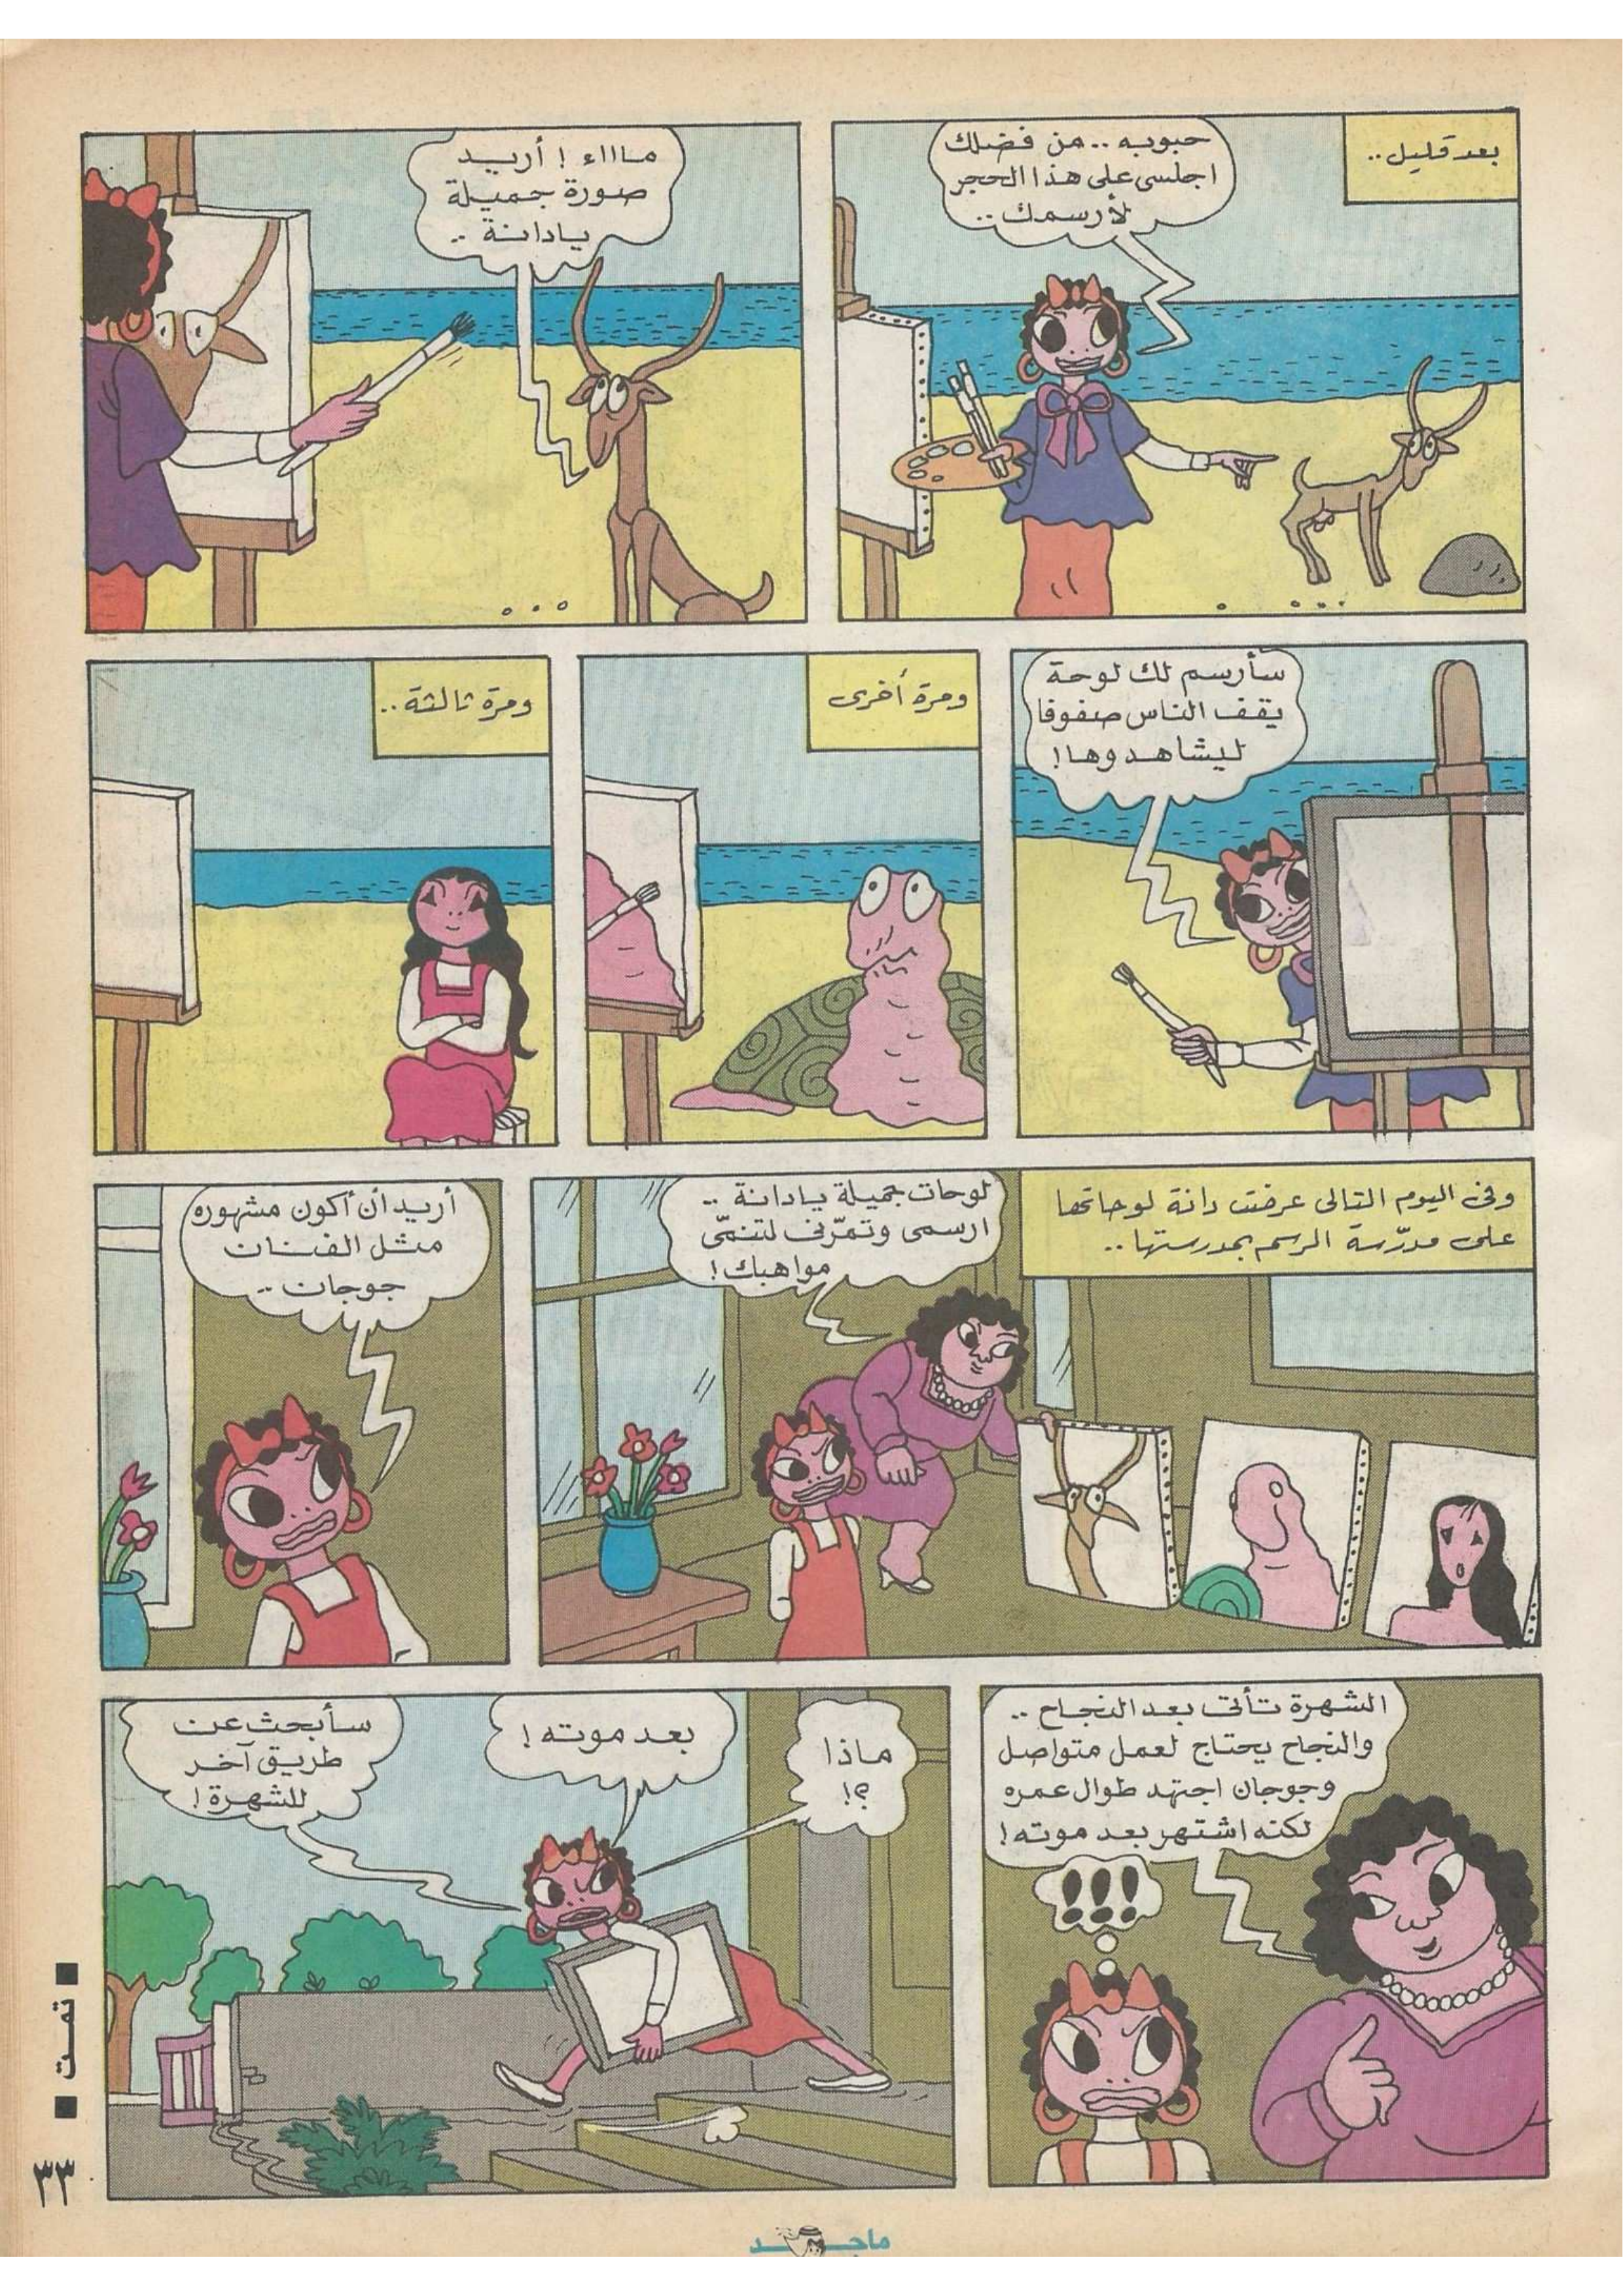 بعد قليل..
حبوبه .. من فضلك
اجلسي على هذا الحجر
لأرسمك ..
ماااء ! أريد
صورة جميلة
يادانة ..
سأرسم لك لوحة
يقف الناس صفوفا
ليشاهدوها!
ومرة أخرى
ومرة ثالثة ..
وفى اليوم التالى عرضت دانة لوحاتها
على مدرّسة الرسم بمدرستها ..
لوحات جميلة يادانة ..
ارسمى وتمرّنى لتنمّى
مواهبك !
أريد أن أكون مشهوره
مثل الفنان
جوجان ..
الشهرة تأتى بعد النجاح ..
والنجاح يحتاج لعمل متواصل
وجوجان اجتهد طوال عمره
لكنه اشتهر بعد موته !
!!!
ماذا
؟!
بعد موته !
سأبحث عن
طريق آخر
للشهرة !
■ تمت ■
٣٣
ماجد